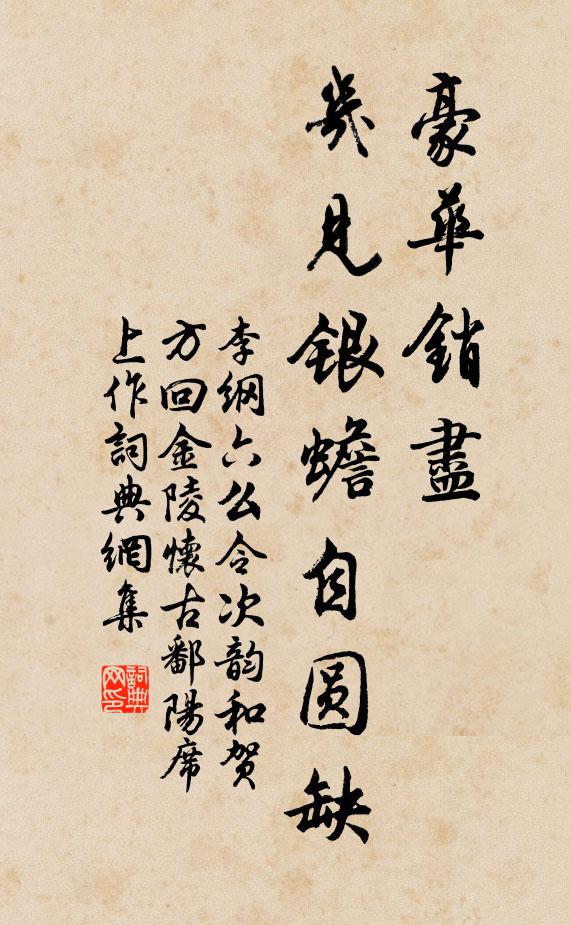 豪華銷盡
幾見銀蟾自圓缺
李綱六么令次韵和賀
方回金陵懷古鄱陽席
上作詞典網集
詞典
网印